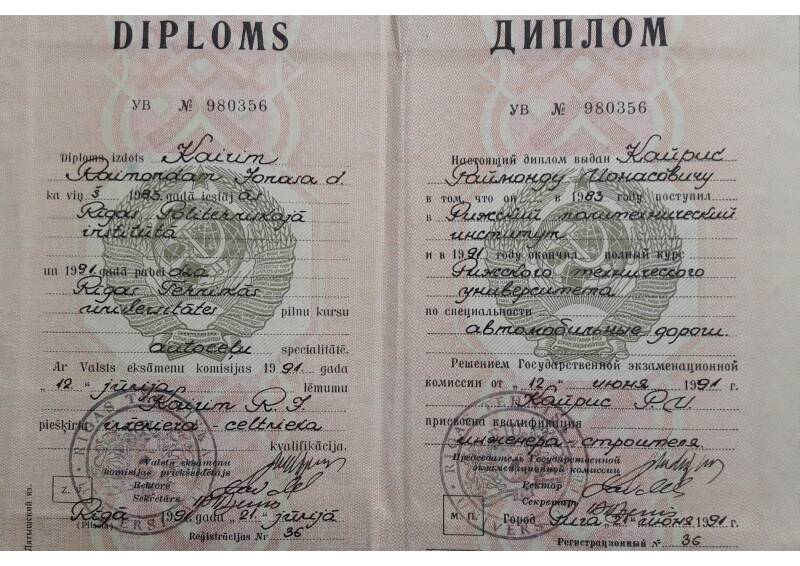 DIPLOMS
УВ № 980356
Diploms izdots Kairim
Raimondam Jonasa d.
ka viņš 1983. gadā iestājās
Rīgas Politehniskajā
institūtā
un 1991 gadā pabeidza
Rīgas Tehniskās
universitātes pilnu kursu
autoceļu specialitātē.
Ar Valsts eksāmenu komisijas 1991. gada
„12.“ jūnija lēmumu
Kairim R. J.
piešķirta inženiera-celtnieka
kvalifikācija.
Valsts eksāmenu
komisijas priekšsēdētājs
Rektors
Sekretārs
Z. v.
Rīgā 1991. gada „21.“ jūnijā
(Pilsēta)
Reģistrācijas Nr 36
Латышский яз.
ДИПЛОМ
УВ № 980356
Настоящий диплом выдан Кайрис
Раймонду Ионасовичу
в том, что он в 1983 году поступил
в Рижский политехнический
институт
и в 1991 году окончил полный курс
Рижского технического
университета
по специальности
автомобильные дороги.
Решением Государственной экзаменационной
комиссии от „12“ июня 1991 г.
Кайрис Р. И.
присвоена квалификация
инженера-строителя
Председатель Государственной
экзаменационной комиссии
Ректор
Секретарь
М. П.
Город Рига, „21“ июня 1991 г.
Регистрационный № 36